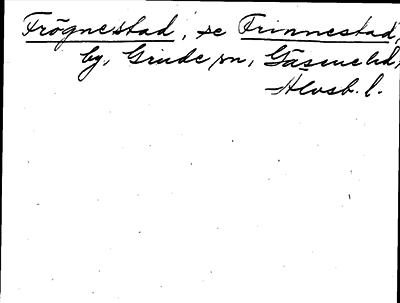 Frögnestad, se Frinnestad,
by, Grude sn, Gäsene hd,
Älvsb. l.